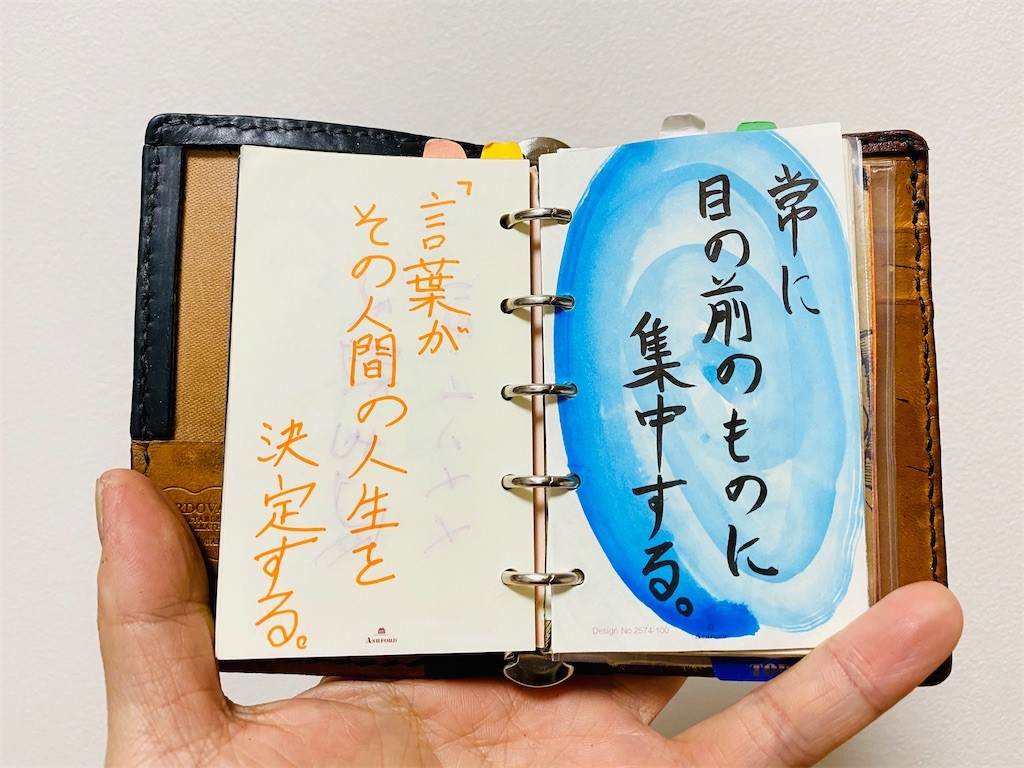 常に
目の前のものに
集中する。
Design No.2574-100
ASHFORD
「言葉が
その人間の人生を
決定する。
ASHFORD